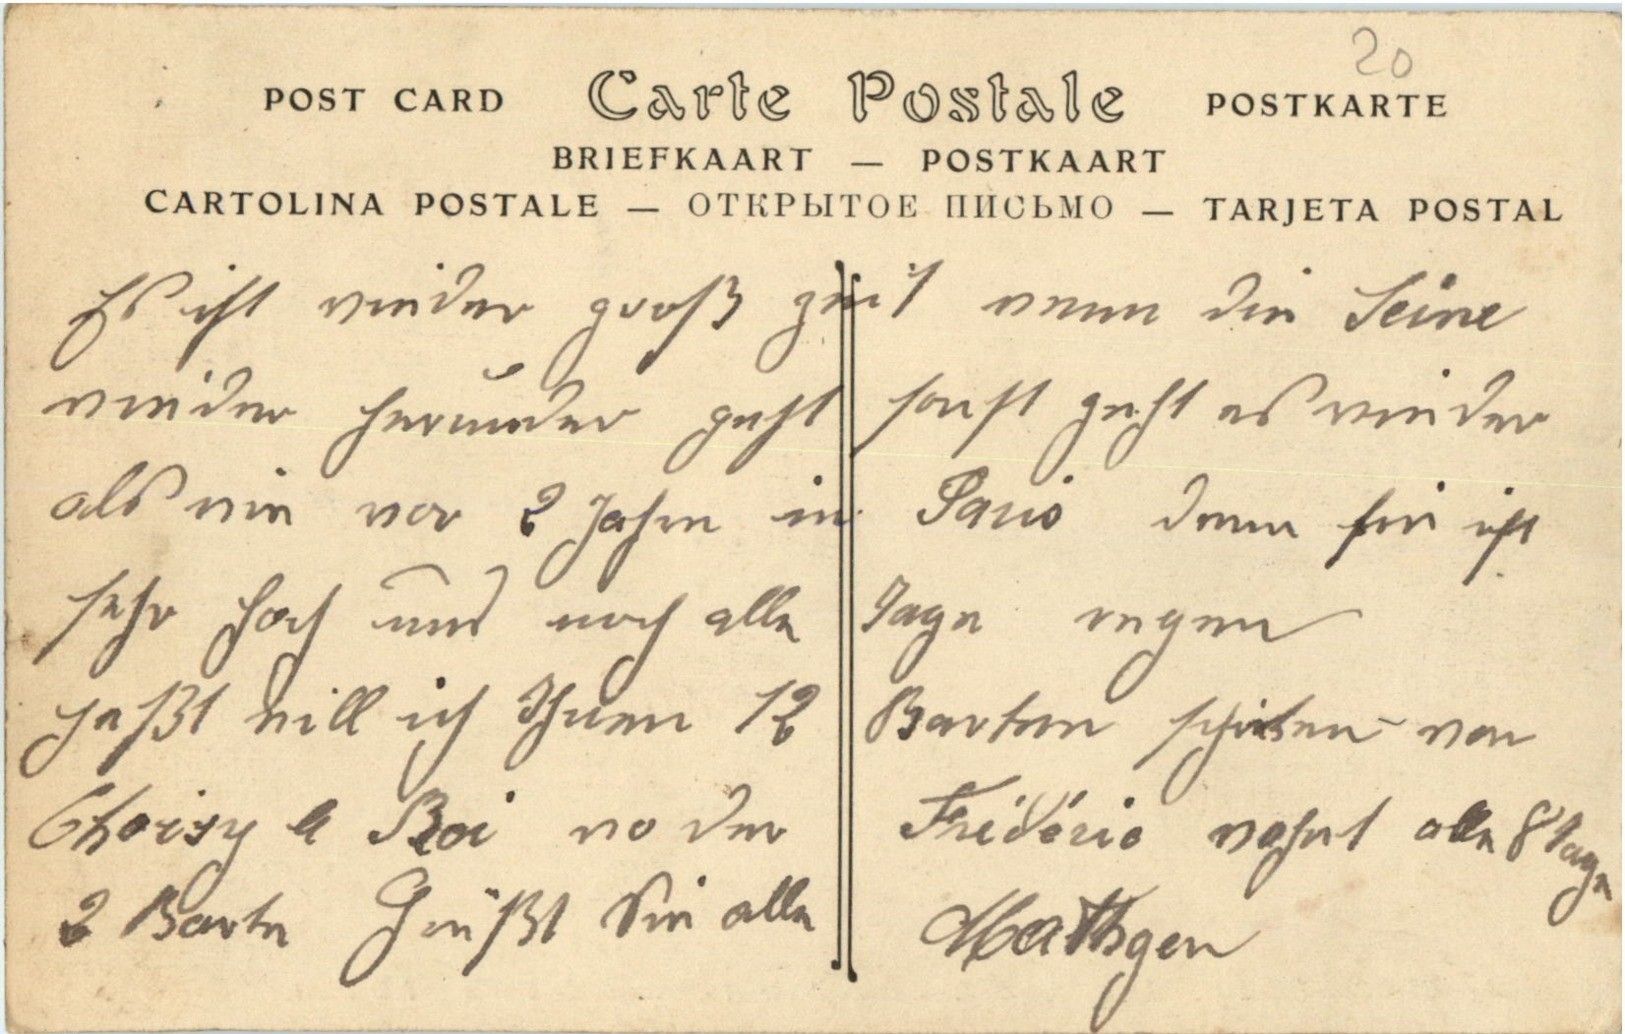 20
POST CARD Carte Postale POSTKARTE
BRIEFKAART — POSTKAART
CARTOLINA POSTALE — ОТКРЫТОЕ ПИСЬМО — TARJETA POSTAL
Es ist wieder groß zeit wenn die Seine
wieder herunder geht sonst geht es wieder
als wie vor 2 Jahre in Paris denn sie ist
sehr hoch und noch alle Tage regen
heßt will ich Ihnen 12 Karten schiken von
Choisy le Roi wo der Frédéric wohnt alle 8 Tage
2 Karte Grüßt Sie alle Mathgen